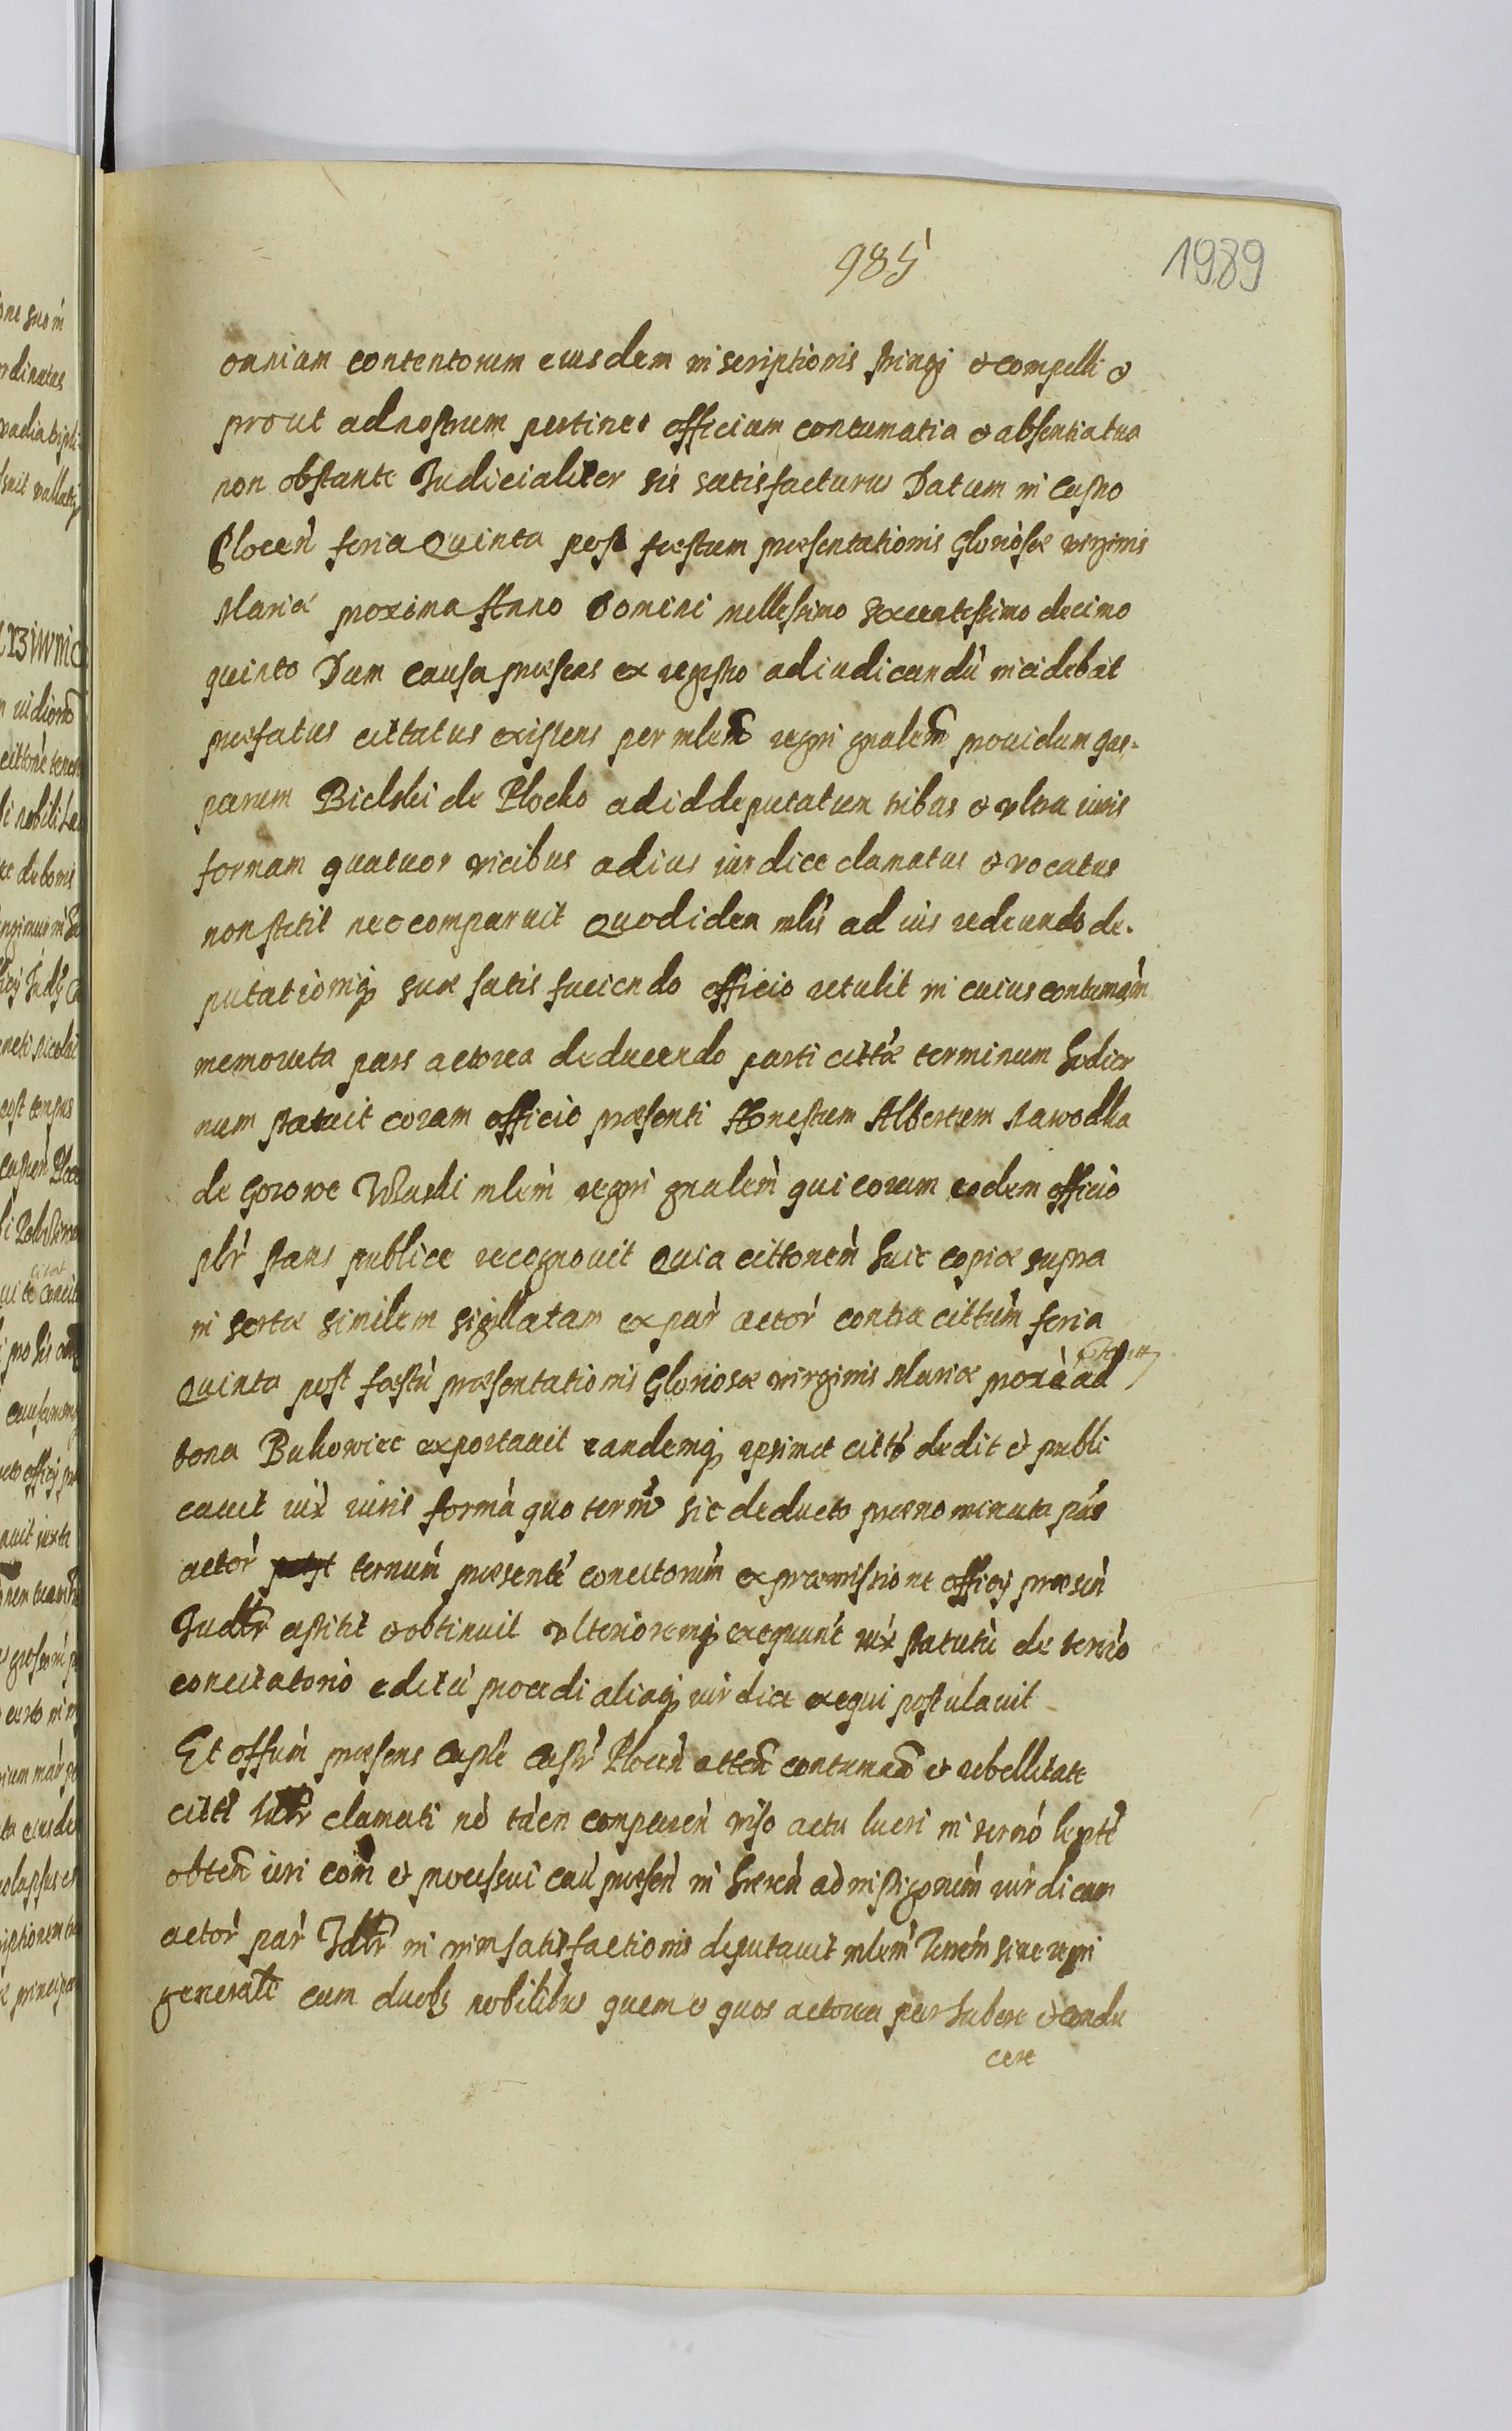 985
1989
omnium contentorum eiusdem inscriptionis stringi et compelli et
prout ad nostrum pertinet officium contumatia et absentia tua
non obstante Judicialiter sis satisfacturus Datum in Castro
Plocen̄ feria Quinta post fæstum præsentationis Gloriosæ virginis
Mariæ proxima Anno Domini millesimo sexcentesimo decimo
quinto Dum causa præsens ex regestro adiudicandū incidebat
præfatus cittatus existens per mlem̄ regni gnalem̄ providum Gas-
parum Bielski de Plocko ad id deputatum tribus et ultra iuris
formam quatuor vicibus ad ius iurdice clamatus et vocatus
non stetit nec comparuit Quod idem mlis ad ius redeundo de-
putationiq suæ satis faciendo officio retulit in cuius contumam̄
memorata pars actorea deducendo parti cittæ terminum hodier
num statuit coram officio præsenti Honestum Albertum Nawodka
de Gorowe Wluski mlem̄ regni gnalem̄ qui coram eodem officio
plr̄ stans publice recognovit Quia cittonem̄ huic copiæ supra
in sertæ similem sigillatam ex par̄ actor̄ contra cittum̄ feria
Quinta post fæstū præsentationis Gloriosæ virginis Mariæ proxā ad
bona Bukowiec exportavit eandemq ipsimet citto dedit et publi
cavit iux iuris formā quo termō sic deducto prænominata par̄s
actor̄ ternum̄ præsente concitorium̄ ex præmissione officy præsen̄
Judlr̄ astitit et obtinuit ulterioremq exequune iux statutū de termō
concitatorio editū procedi aliaq iurdice exequi postulavit
Et offum̄ præsens Caple Castr̄ Plocen̄ atten̄ contumam̄ et rebellitate
citti Judlr̄ clamati nō tāen comparen̄ viso actu lucri in termō
obten̄ iuri com̄ et processui cau præsen̄ in hæren̄ ad instigonem̄ iurdicam
actor̄ par̄ Jdlr̄ in vim satisfactionis deputavit mlem̄ sive regni
generale cum duobs nobilibus quem et quos actorea pars habere et condu
cere